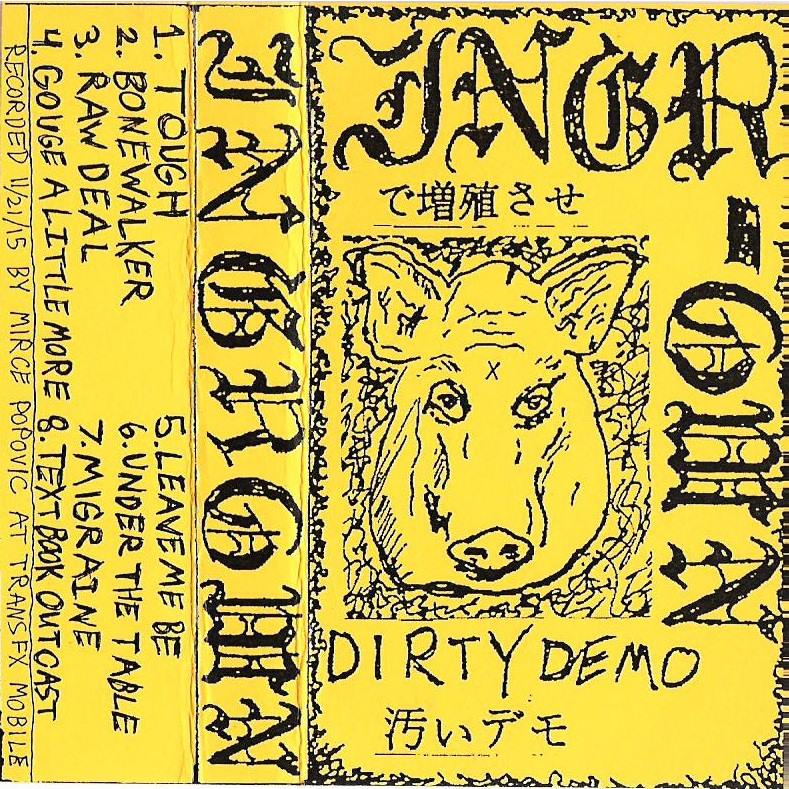 1. TOUGH
2. BONEWALKER
3. RAW DEAL
4. GOUGE A LITTLE MORE
5. LEAVE ME BE
6. UNDER THE TABLE
7. MIGRAINE
8. TEXT BOOK OUTCAST
RECORDED 11/21/15 BY MIRCE POPOVIC AT TRANS FX MOBILE
INGROWN
INGR-
OWN
で増殖させ
X
DIRTY DEMO
汚いデモ